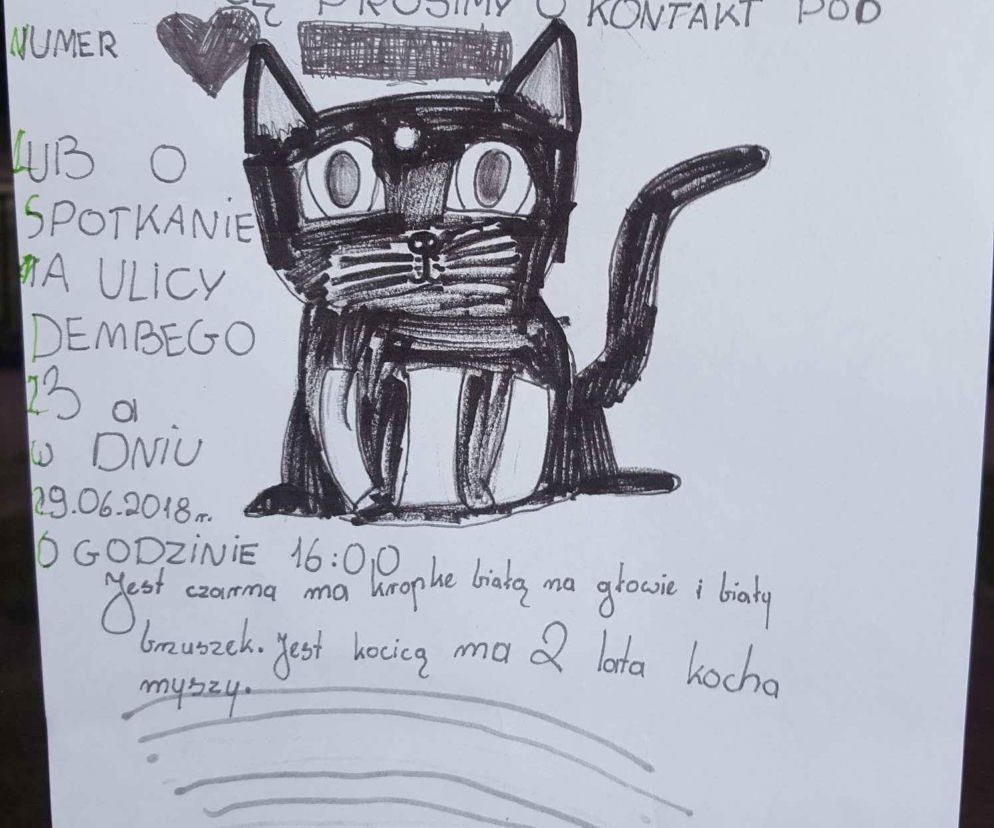 PROSIMY O KONTAKT POD
NUMER
LUB O
SPOTKANIE
NA ULICY
DEMBEGO
23 a
W DNIU
29.06.2018r.
O GODZINIE 16:00
Jest czarna ma kropke białą na głowie i biały
brzuszek. Jest kocicą ma 2 lata kocha
myszy.